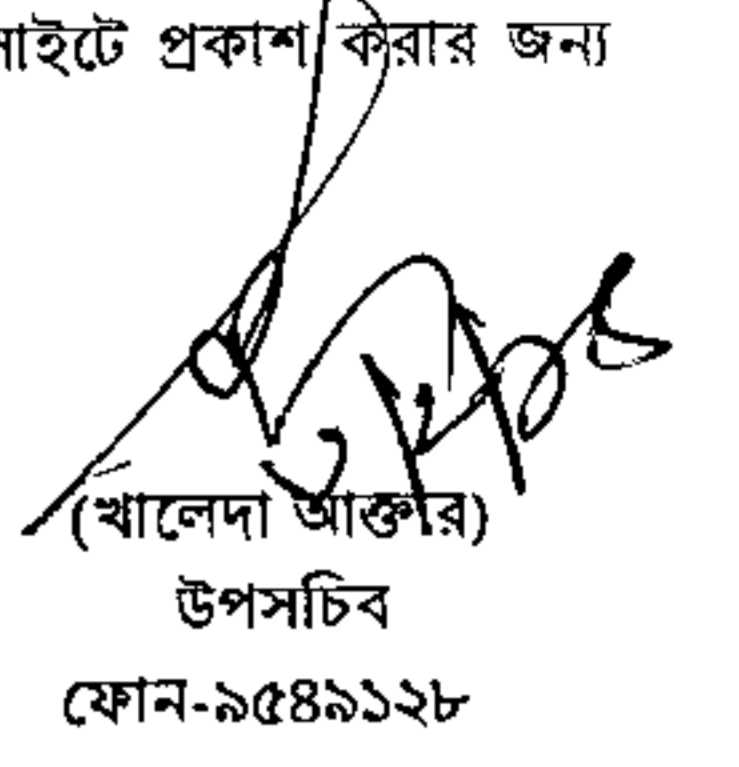 সাইটে প্রকাশ করার জন্য
(খালেদা আক্তার)
উপসচিব
ফোন-৯৫৪৯১২৮